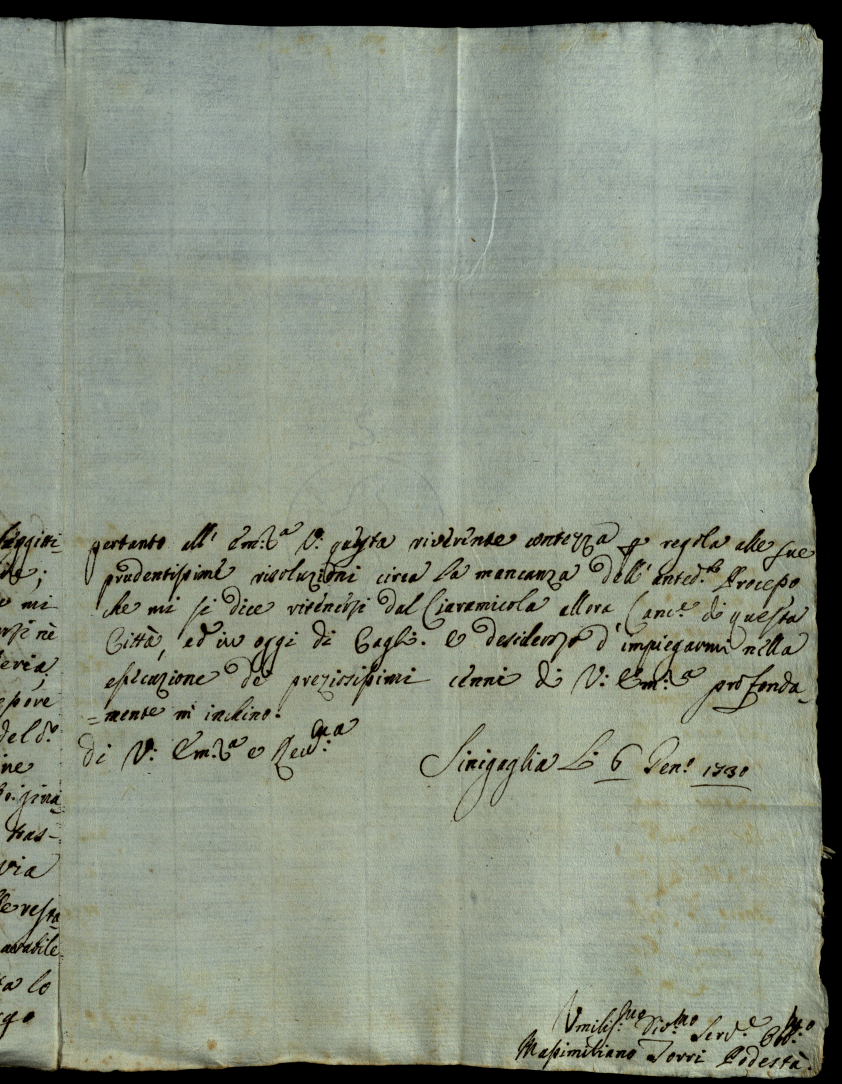 pertanto all' Em:za V: questa riverente contezza p regola alle sue
prudentissime risoluzioni circa la mancanza dell' anted.to Processo
che mi si dice ritenersi dal Ciaramicola allora Canc.e di questa
Città, ed in oggi di Cagli. e desideroso d' impiegarmi nella
esecuzione de preziosissimi cenni di V: Em:za profonda_
=mente m' inchino:
di V: Em:za e Rev:ma
Sinigaglia Li 6 Gen.o 1730
Umilis:mo Div:mo Serv.e Obb:mo
Massimiliano Torri Podestà.
aggiri_
mi
nè
eria
del d.o
ne
via
resta
arabile
lo